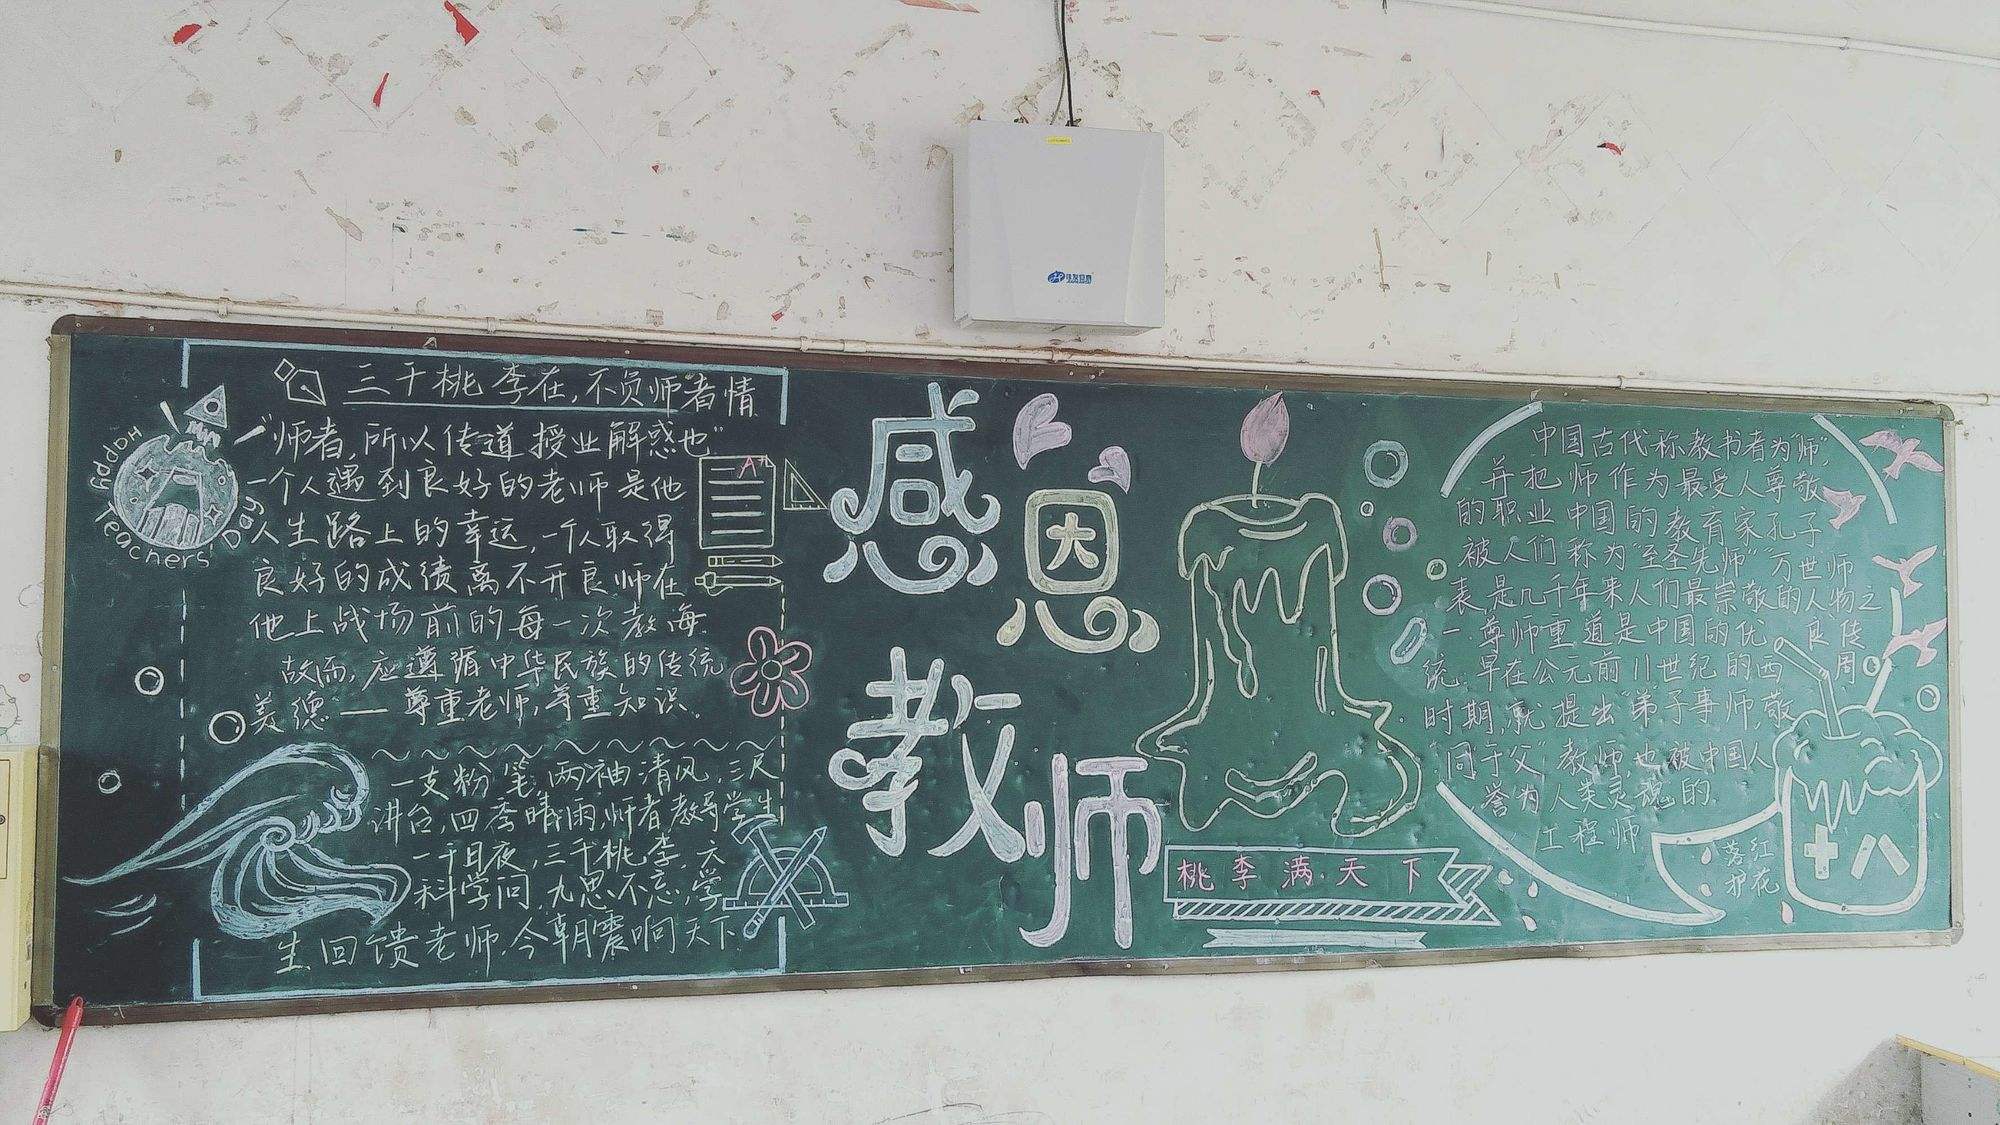 Happy
Teachers'
Day
三千桃李在,不负师者情
“师者,所以传道授业解惑也”
一个人遇到良好的老师是他
人生路上的幸运,一个人取得
良好的成绩离不开良师在
他上战场前的每一次教诲.
故而,应遵循中华民族的传统
美德——尊重老师,尊重知识。
一支粉笔,两袖清风,三尺
讲台,四季晴雨,师者教导学生
一千日夜,三千桃李,六
科学问,九思不忘,学
生回馈老师,今朝震响天下
A+
感恩
教师
桃李满天下
中国古代称教书者为“师”,
并把师作为最受人尊敬
的职业中国的教育家孔子
被人们称为“至圣先师”“万世师
表,是几千年来人们最崇敬的人物之
一尊师重道是中国的优良传
统.早在公元前11世纪的西周
时期,就提出“弟子事师,敬
同于父”教师,也被中国人
誉为人类灵魂的
工程师
落红
护花